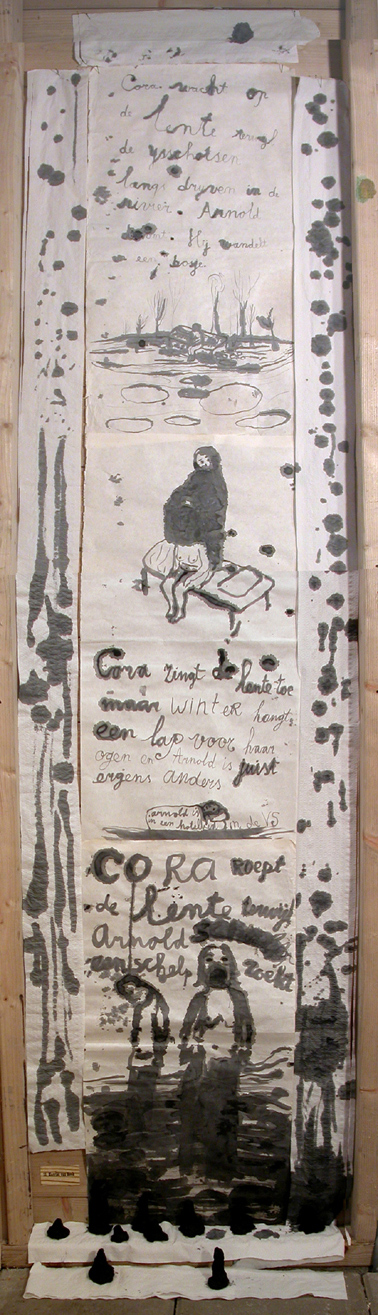 Cora wacht op
de lente terwijl
de ysschotsen
langs dryven in de
rivier. Arnold
komt. Hy wandelt
een basje
Cora zingt de lente toe
maar WINTER hangt
een lap voor haar
ogen en Arnold is juist
ergens anders
arnold
in een hotel in de VS
CORA roept
de lente terwijl
Arnold
een schelp zoekt